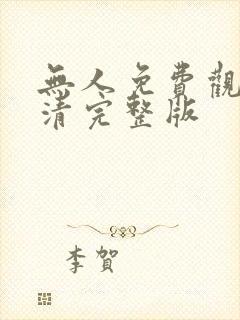 無人免費觀
清完整版
李賀